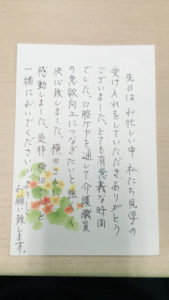 先日はお忙しい中、私たち見学の
受け入れをしていただきありがとう
ございました。とても有意義な時間
でした。口腔ケアを通して、介護職員
の意欲向上につなぎたいと強く
決心致しました。横田さんに
感動しました。是非、横田さんと
一緒においでください。よろ
お願い致します。